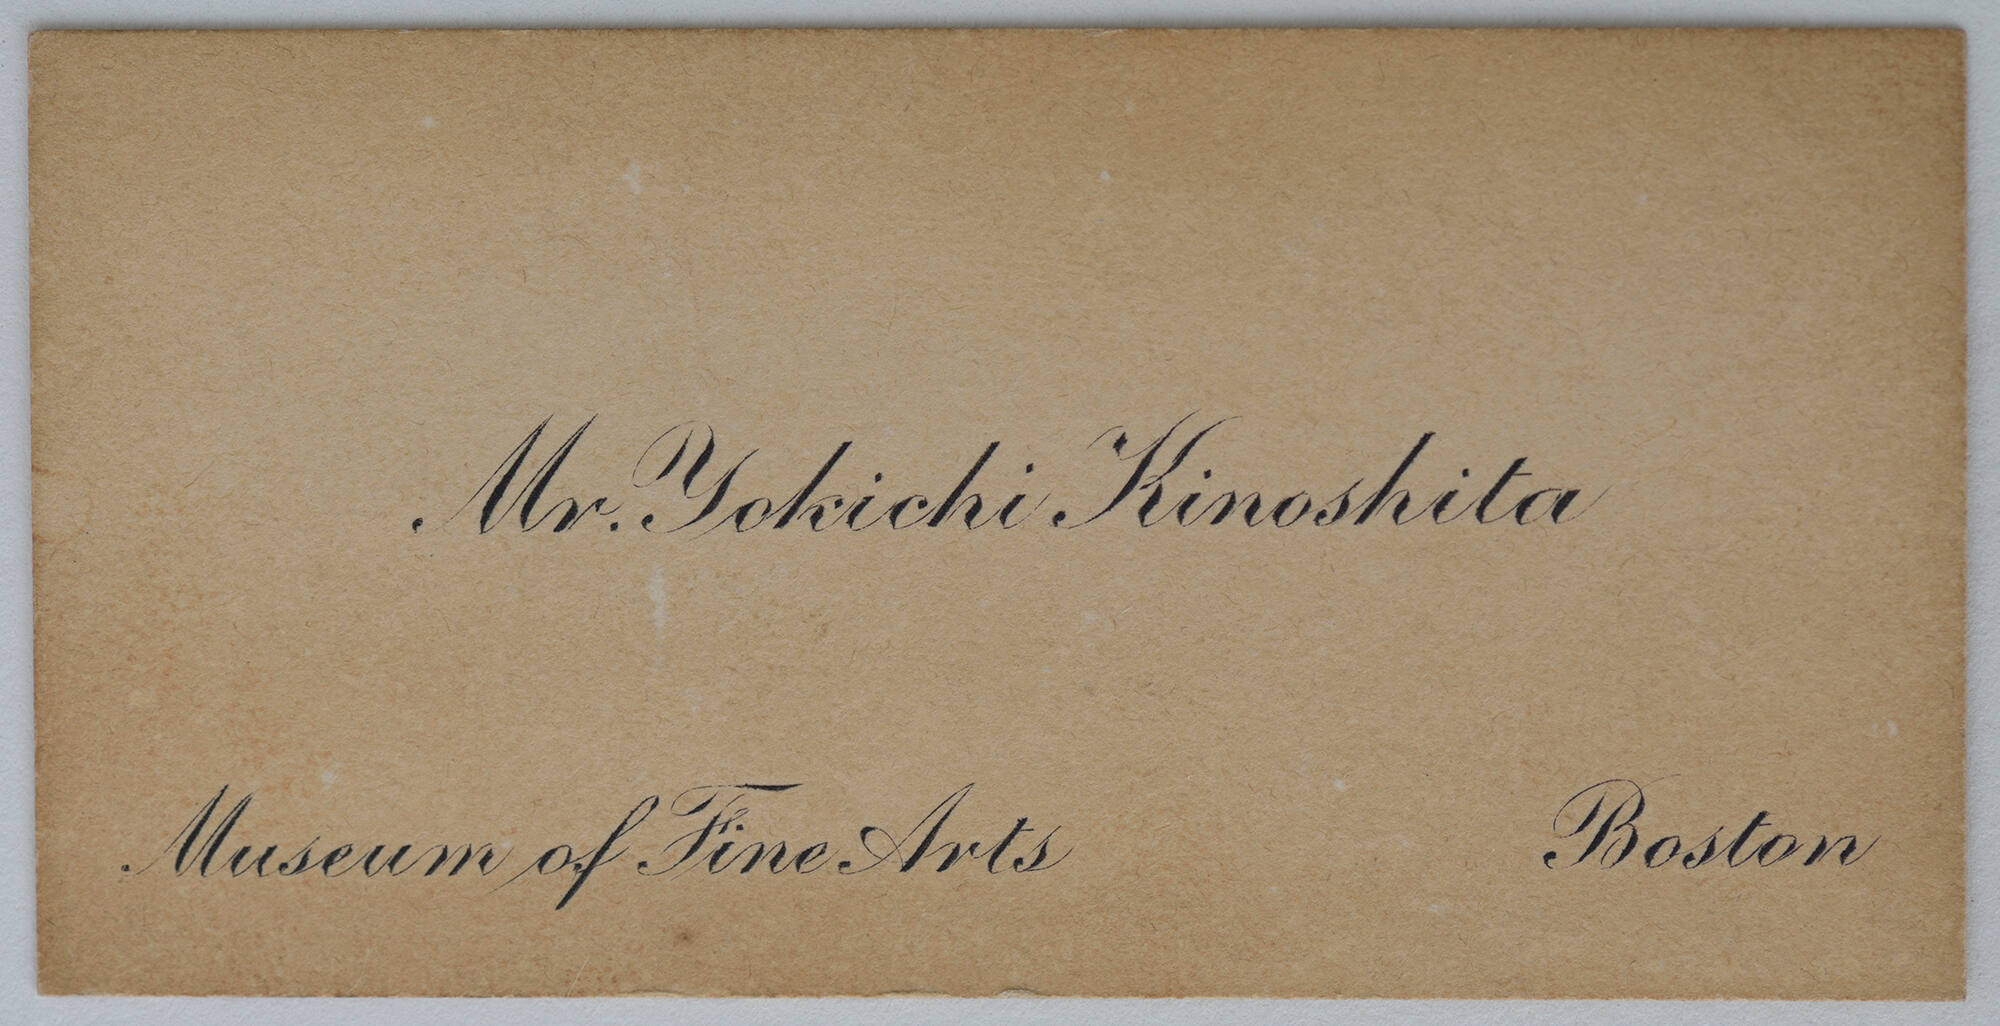 Mr. Yokichi Kinoshita
Museum of Fine Arts Boston